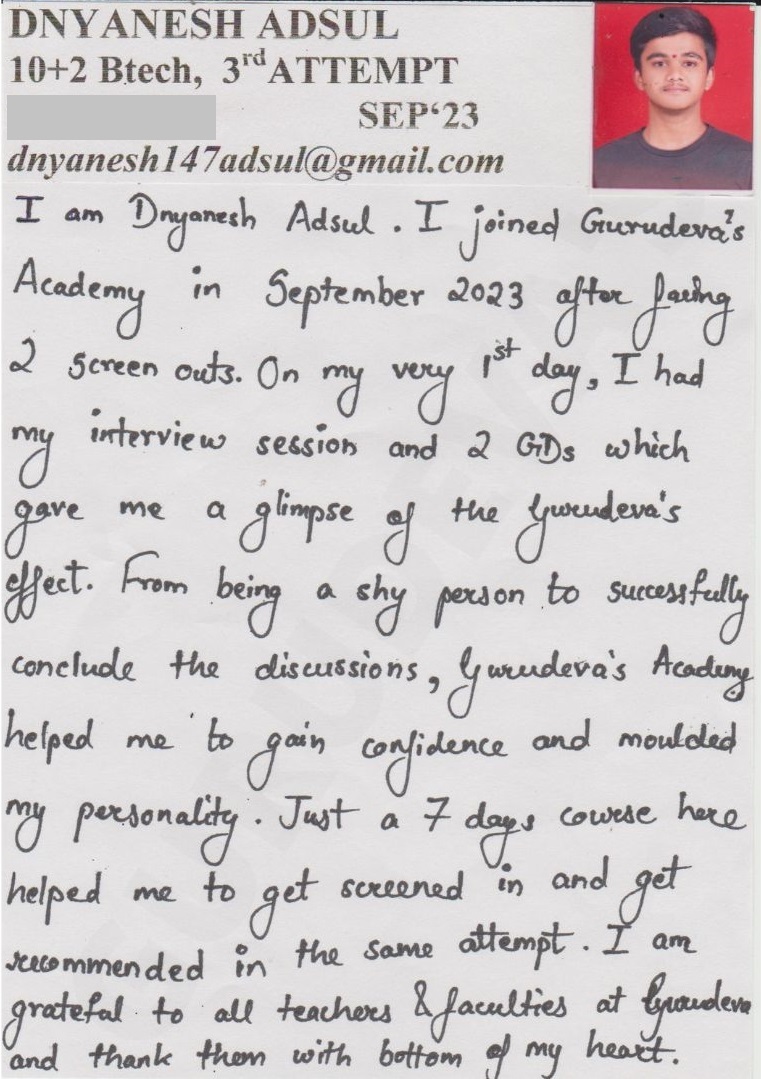 DNYANESH ADSUL
10+2 Btech, 3rd ATTEMPT
SEP‘23
dnyanesh147adsul@gmail.com
I am Dnyanesh Adsul. I joined Gurudeva's
Academy in September 2023 after facing
2 screen outs. On my very 1st day, I had
my interview session and 2 GDs which
gave me a glimpse of the Gurudeva's
effect. From being a shy person to successfully
conclude the discussions, Gurudeva's Academy
helped me to gain confidence and moulded
my personality. Just a 7 days course here
helped me to get screened in and get
recommended in the same attempt. I am
grateful to all teachers & faculties at Gurudeva
and thank them with bottom of my heart.